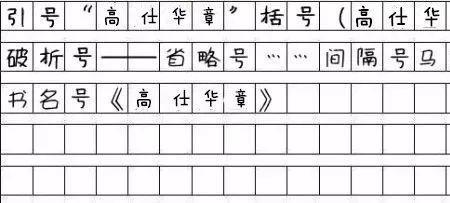 引号“高仕华章”括号(高仕华
破折号——省略号……间隔号马
书名号《高仕华章》